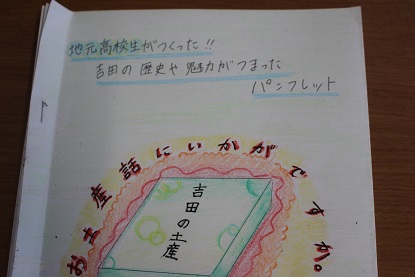 地元高校生がつくった!!
吉田の歴史や魅力がつまった
パンフレット
お土産話にいかがですか。
吉田の土産